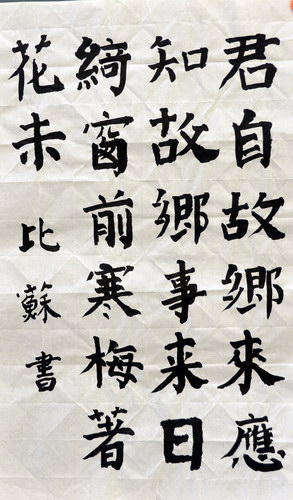 君自故鄉來應
知故鄉事来日
綺窗前寒梅著
花未
比蘇書